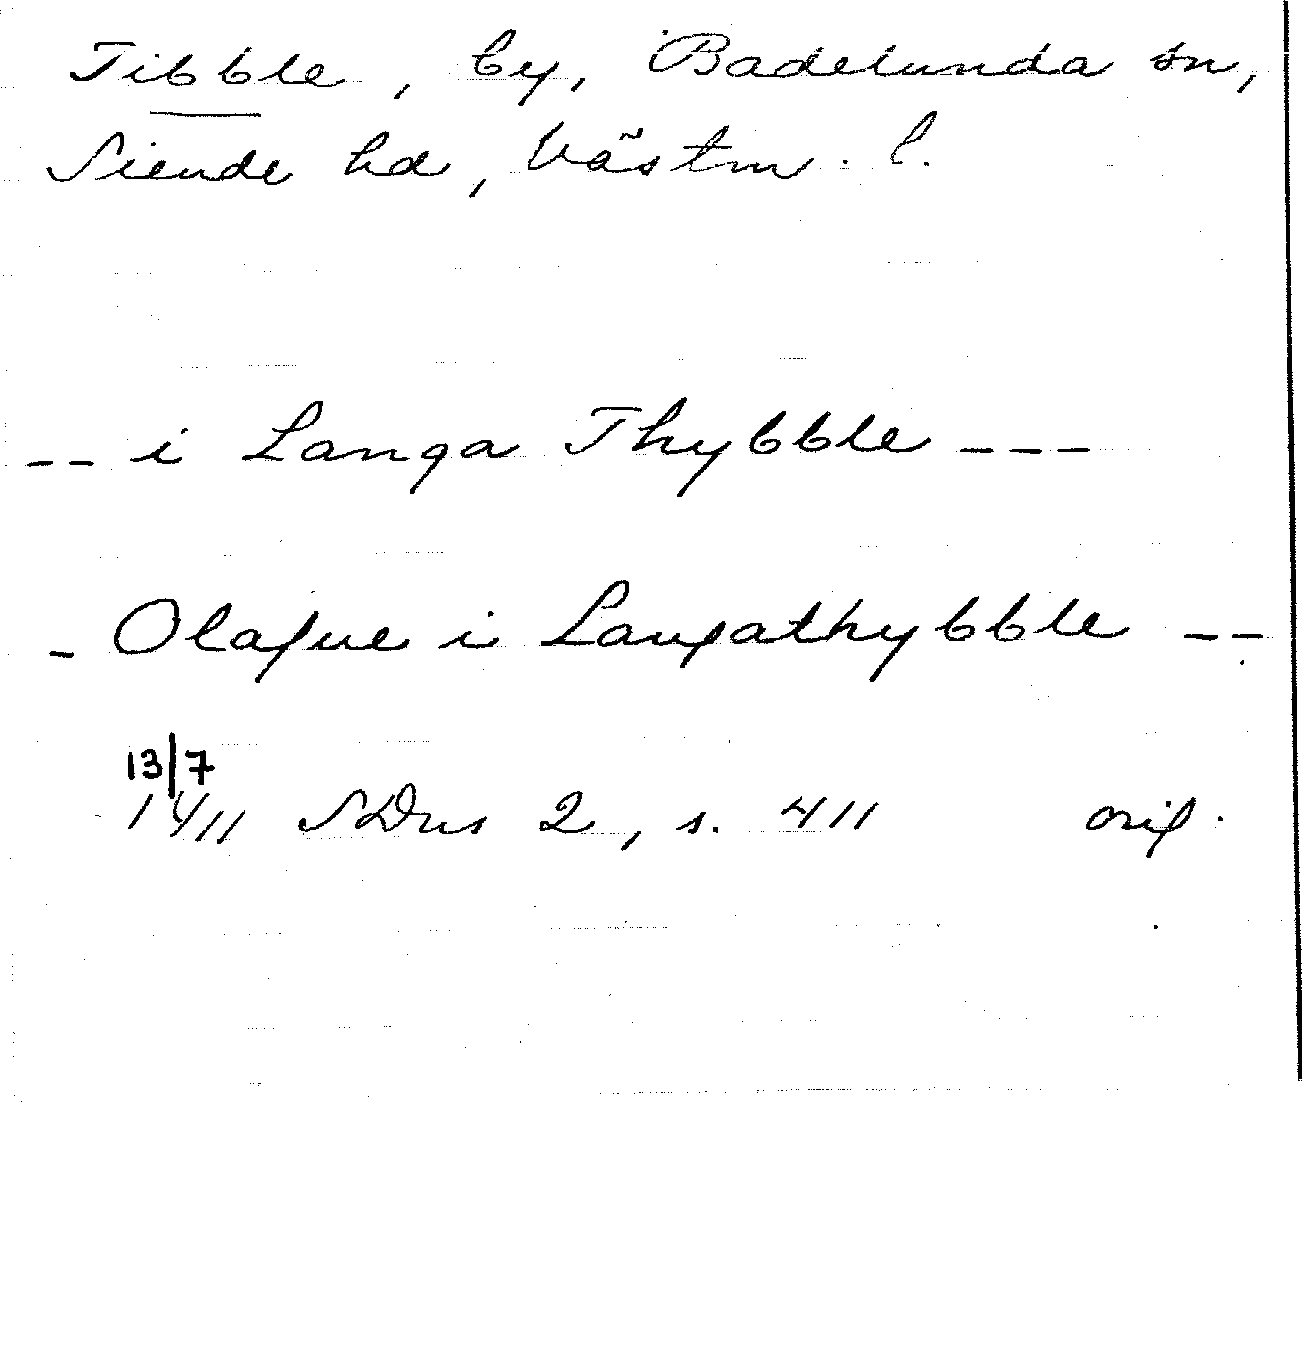 Tibble, by, Badelunda sn,
Siende hd, Västm. l.
-- i Langa Thybble ---
- Olafue i Langathybble --
13/7
1411 SDns 2, s. 411 orig.